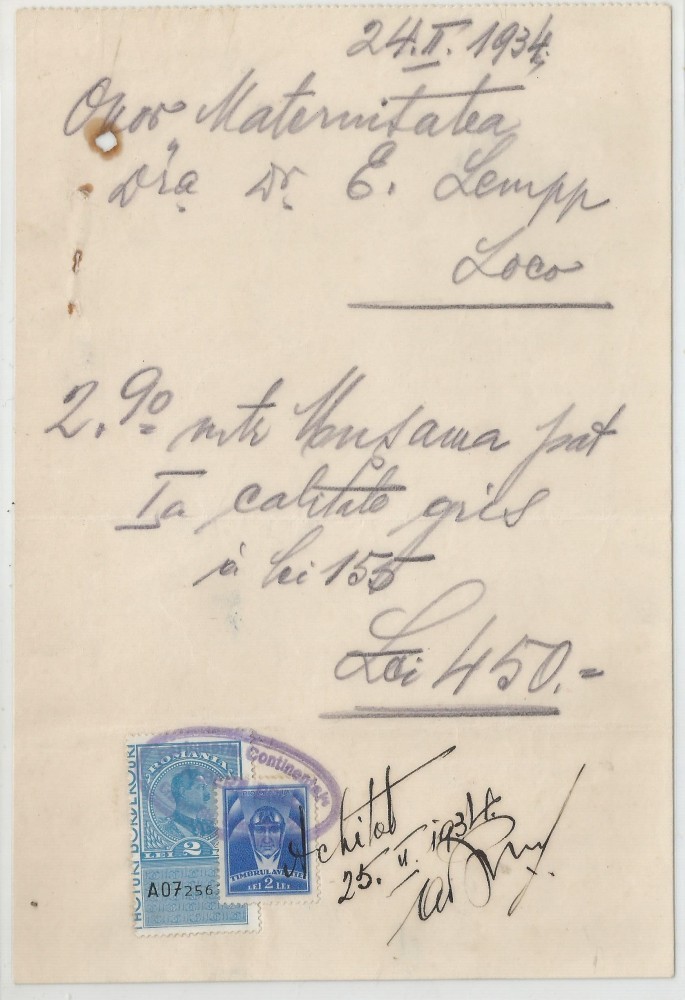 24.II.1934.
Onor Maternitatea
Dra Dr. E. Lempp
Loco
2.90 mtr Musama pat
Ia calitate gris
à lei 155
Lei 450.=
Continental
ROMANIA
LEI 2
A07256
TIMBRUL AVIAȚIEI
LEI 2 LEI
Achitat
25.II.1934.